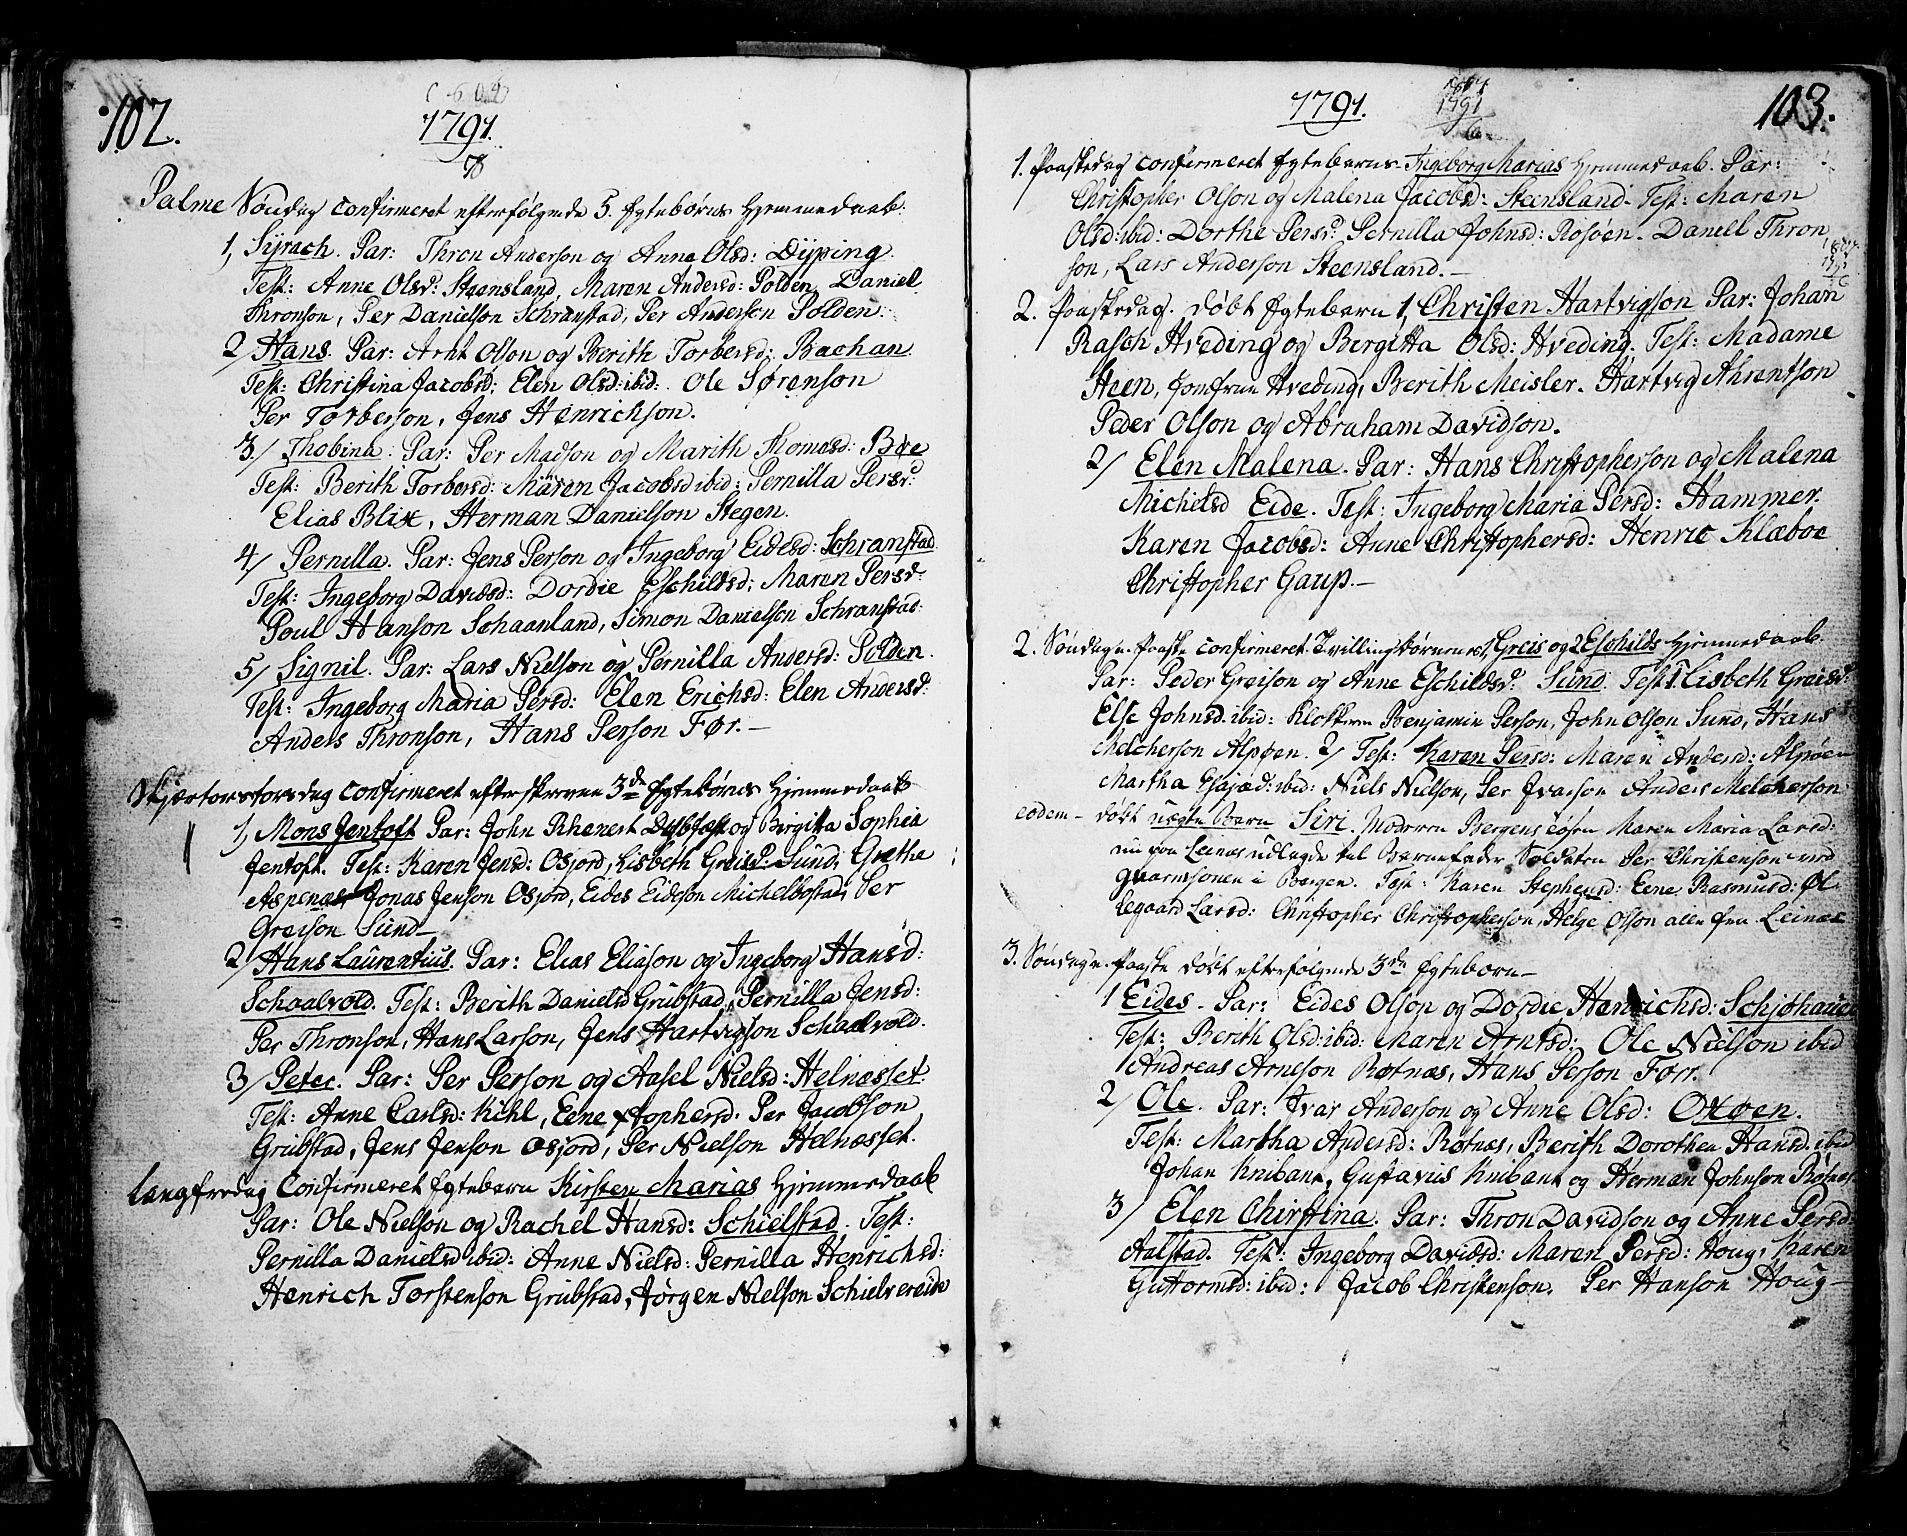 102.
1791.
Palme Søndag confirmeret efterfølgende 5. Ægtebørns Hjemmedaab:
1, Syrach. Par: Thron Anderson og Anne Olsd: Dypping.
Test: Anne Olsd: Steensland, Maren Andersd: Polden, Daniel
Thronson, Per Danielson Schranstad, Per Anderson Polden:
2/ Hans. Par: Arnt Olson og Berith Torbersd: Bachan.
Test: Christina Jacobsd: Elen Olsd: ibid: Ole Sørenson
Per Torberson, Jens Henrichson.
3/ Thobina. Par: Per Madson og Marith Thomasd: Bøe
Test: Berith Torbersd: Maren Jacobsd ibid: Pernilla Persd:
Elias Blix, Herman Danielson Stegen.
4/ Pernilla. Par: Jens Person og Ingeborg Eidesd: Schranstad
Test: Ingeborg Davidsd: Dordie Eschildsd: Maren Persd:
Poul Hanson Schaanland, Simon Danielson Schranstad:
5/ Signil. Par: Lars Nielson og Pernilla Andersd: Polden.
Test: Ingeborg Maria Persd: Elen Erichsd: Elen Andersd:
Anders Thronson, Hans Person Før. –
Skjærtorstorsdag confirmeret efterskrevne 3de Ægtebørns Hjemmedaab
1, Mons Jentoft Par: John Rhenert og Birgitta Sophia
Jentoft. Test: Karen Jensd: Osjord, Lisbeth Greisd: Sund, Grethe
Aspenæs, Jonas Jenson Osjord, Eides Eideson Michelbostad, Per
Greison Sund –
2/ Hans Laurentius. Par: Elias Eliason og Ingeborg Hansd:
Schaalvold. Test: Berith Danielsd Grubstad, Pernilla Jensd:
Per Thronson, Hans Larson, Jens Hartvigson Schaalvold.
3/ Peter. Par: Per Person og Aasel Nielsd: Helnæsset.
Test: Anne Carlsd: Kihl, Eene Xstophersd: Per Jacobson
Grubstad, Jens Jenson Osjord, Per Nielson Helnæsset.
Langfredag Confirmeret Ægtebarn Kirsten Marias Hjemmedaab
Par: Ole Nielson og Rachel Hansd: Schielstad. Test:
Pernilla Danielsd ibid: Anne Nielsd: Pernilla Henrichsd:
Henrich Torstenson Grubstad, Jørgen Nielson Schielvereide
1791.
1791
103.
1. Paaskedag confirmeret Ægtebarns Ingeborg Marias Hjemmedaab. Par:
Christopher Olson og Malena Jacobsd: Steensland. Test: Maren
Olsd: ibid: Dorthe Persd: Pernilla Johnsd: Rosøen. Daniel Thron
son, Lars Anderson Steensland. –
2. Paaskedag. døbt Ægtebarn 1, Christen Hartvigson Par: Johan
Rasch Hveding og Bergitta Olsd: Hveding, Test: Madame
Steen, Jomfrue Hveding, Berith Meisler. Hartvig Ahrentson
Peder Olson og Abraham Davidson.
2/ Elen Malena. Par: Hans Christopherson og Malena
Michelsd Eide. Test: Ingeborg Maria Persd: Hammer.
Karen Jacobsd: Anne Christophersd: Henric Klæboe
Christopher Gaup. –
2. Søndag e. Paaske confirmeret Tvillingbørnenes, Greis og 2 Eschilds Hjemmedaab.
Par: Peder Greison og Anne Eschildsd: Sund. Test: 1. Lisbeth Greisd:
Else Johnsd: ibid: Klokkeren Benjamin Person, John Olson Sund, Hans
Melcherson Alpøen. 2/ Test: Karen Persd: Maren Andersd: Alpøen
Martha Esajæd: ibid: Niels Nielson, Per Ivarson Anders Melcherson
eodem – døbt uægte Barn Siri. Moderen Maren Maria Larsd:
nu paa Leinæs udlagde til Barnefader Soldaten Per Christenson ved
guarnisonen i Bergen. Test: Karen Stephensd: Eene Rasmusd: Øl
legaard Larsd: Christopher Christopherson, Helge Olson alle fra Leinæs
3. Søndag e. Paaske døbt efterfølgende 3de Ægtebørn –
1 Eides. Par: Eides Olson og Dordie Henrichsd: Schjøhauen
Test: Berith Olsd: ibid: Maren Arntsd: Ole Nielson ibid
Andreas Arneson Røtnæs, Hans Person Forr.
2/ Ole. Par: Ivar Anderson og Anne Olsd: Oxøen.
Test: Martha Andersd: Røtnæs, Berith Dorothea Hansd: ibid
Johan Knibant, Gustavus Knibant og Herman Johnson Røtnæs
3/ Elen Chirstina. Par: Thron Davidson og Anne Persd:
Aalstad. Test: Ingeborg Davidsd: Maren Persd: Houg, Karen
Guttormsd: ibid: Jacob Christenson. Per Hanson Houg –